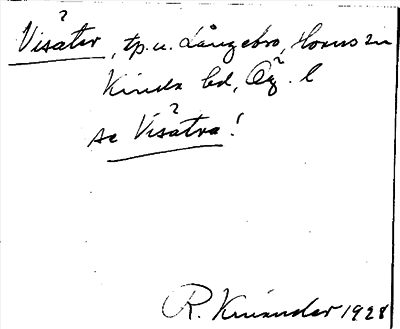 ?
Visäter, tp. u. Långebro, Horns sn
Kinda hd, Ög. l
?
se Visätra!
R. Kinander 1928